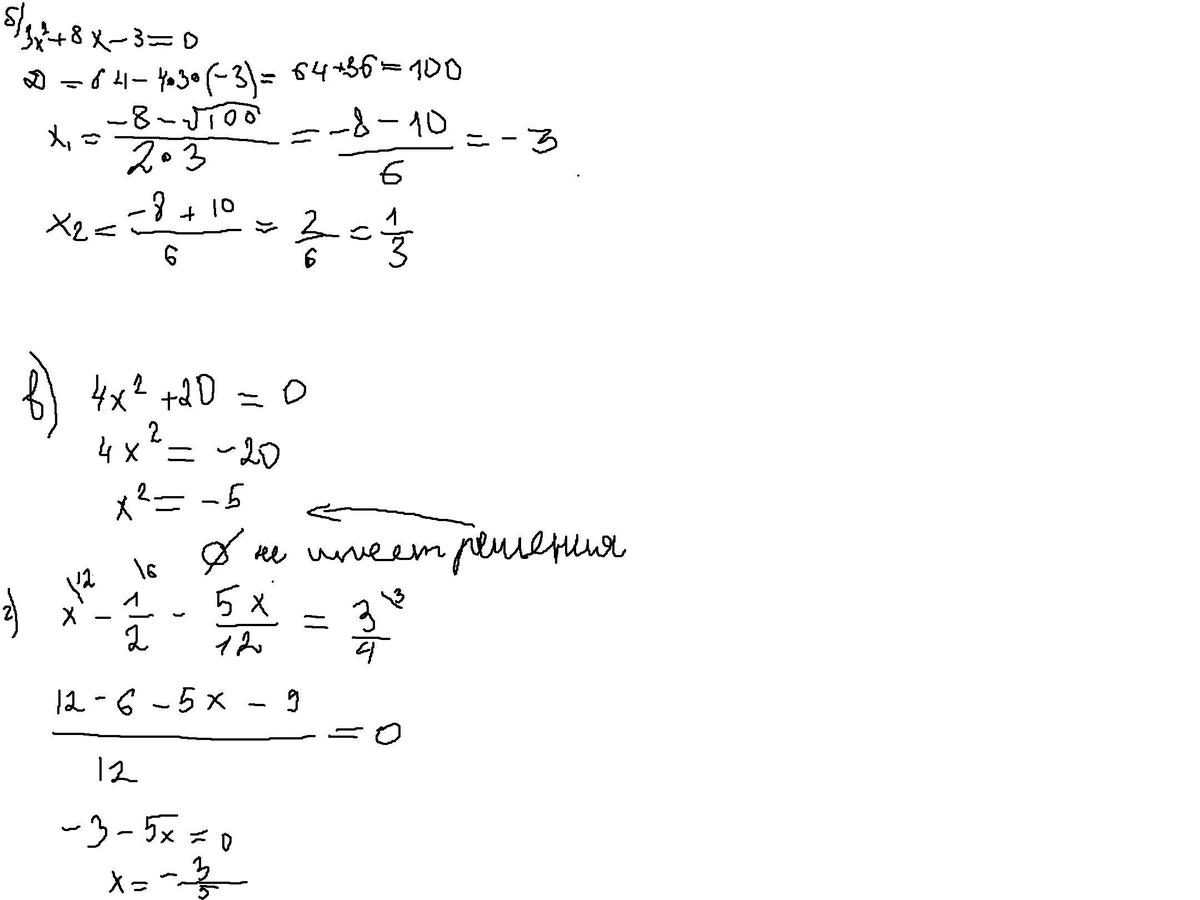 б) 3x² + 8x - 3 = 0
D = 64 - 4·3·(-3) = 64 + 36 = 100
x₁ = (-8 - √100)/(2·3) = (-8 - 10)/6 = -3
x₂ = (-8 + 10)/6 = 2/6 = 1/3
в) 4x² + 20 = 0
4x² = -20
x² = -5
∅ не имеет решения
г) x\12 - 1/2\6 - 5x/12 = 3/4\3
(12 - 6 - 5x - 9)/12 = 0
-3 - 5x = 0
x = -3/5